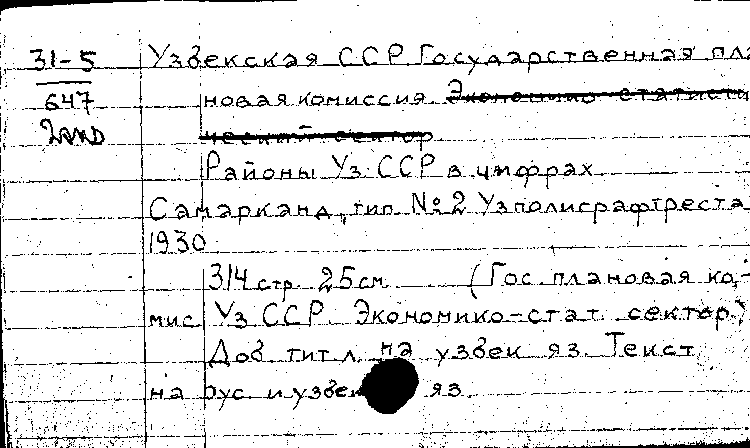 31-5
647
2 экз
Узбекская ССР. Государственная пла
новая комиссия. Экономико-статисти
ческий сектор
Районы Уз. ССР в цифрах
Самарканд, тип. №2 Узполиграфтреста
1930
314 стр. 25 см. (Гос. плановая ко-
мис. Уз ССР. Экономико-стат. сектор)
Доб. тит. л. на узбек. яз. Текст
на рус. и узбек яз.